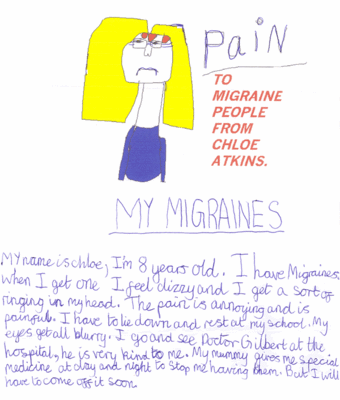 PAIN
TO
MIGRAINE
PEOPLE
FROM
CHLOE
ATKINS.
MY MIGRAINES
My name is chloe, I'm 8 years old. I have Migraines
when I get one I feel dizzy and I get a sort of
ringing in my head. The pain is annoying and is
painful. I have to lie down and rest at my school. My
eyes get all blurry. I go and see Doctor Gilbert at the
hospital, he is very kind to me. My mummy gives me special
medicine at day and night to stop me having them. But I will
have to come off it soon.